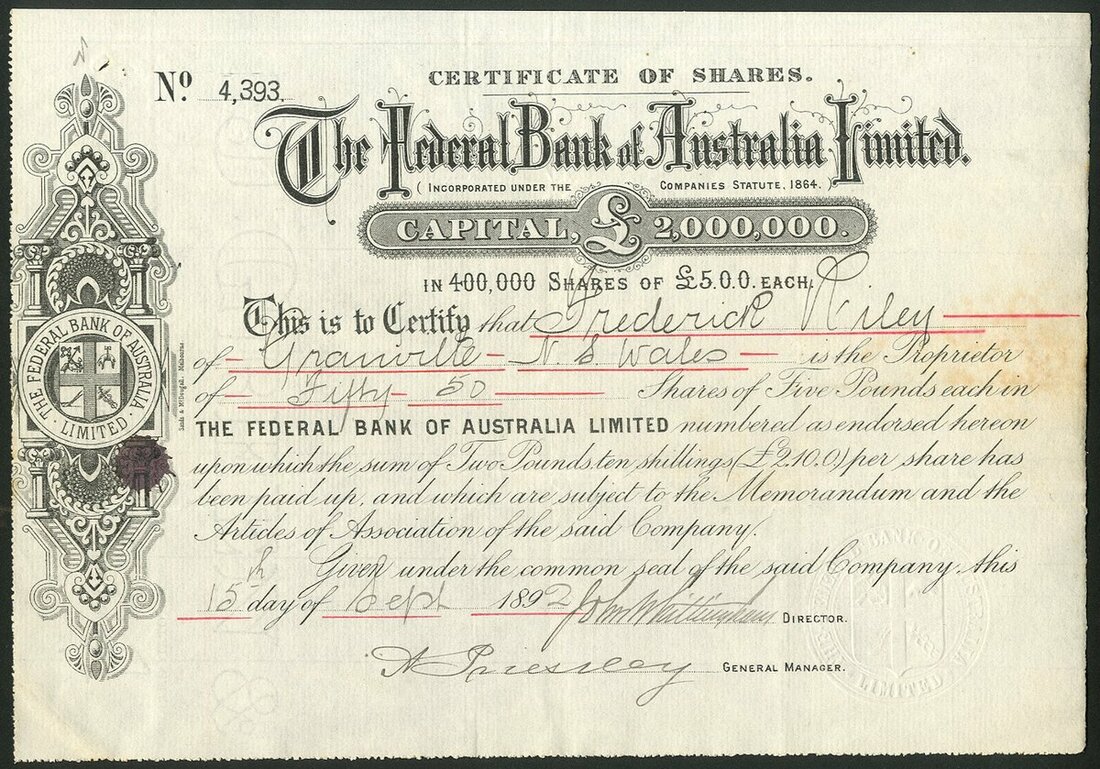 CERTIFICATE OF SHARES.
No. 4,393.
The Federal Bank of Australia Limited.
(INCORPORATED UNDER THE COMPANIES STATUTE, 1864.)
CAPITAL, £2,000,000.
IN 400,000 SHARES OF £5.0.0. EACH.
This is to Certify that Frederick Riley
of Granville N. S. Wales is the Proprietor
of Fifty 50 Shares of Five Pounds each in
THE FEDERAL BANK OF AUSTRALIA LIMITED numbered as endorsed hereon
upon which the sum of Two Pounds ten shillings (£2.10.0) per share has
been paid up, and which are subject to the Memorandum and the
Articles of Association of the said Company.
Given under the common seal of the said Company, this
15th day of Sept 1892 John Whittingham DIRECTOR.
A Priestley GENERAL MANAGER.
THE FEDERAL BANK OF AUSTRALIA LIMITED
Sands & McDougall, Melbourne
LIMITED